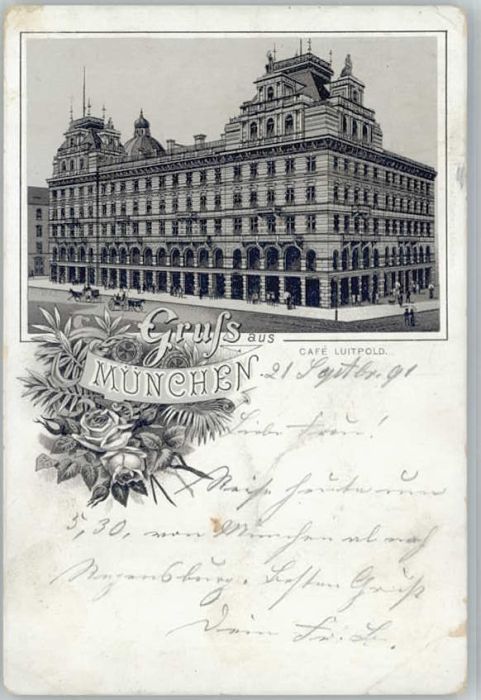 Gruß aus
MÜNCHEN
CAFÉ LUITPOLD.
21 Septbr. 91
Liebe Frau!
Reise heute um
5,30, von München ab nach
Regensburg. Besten Gruß
Dein Fr.